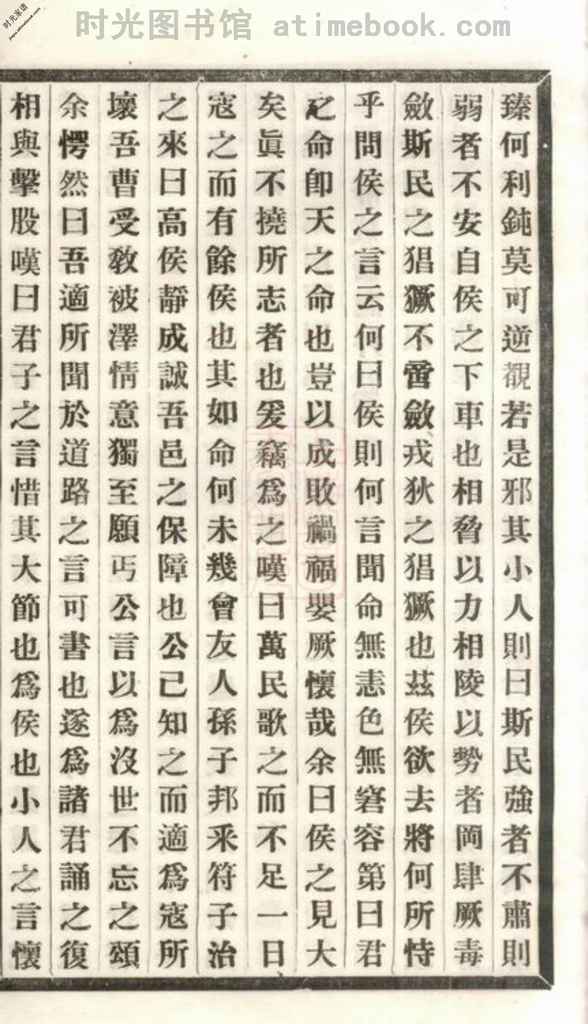 时光图书馆 atimebook.com
时光家谱
www.atimebook.com
臻何利鈍莫可逆覩若是邪其小人則曰斯民強者不肅則
弱者不安自侯之下車也相脅以力相陵以勢者罔肆厥毒
斂斯民之猖獗不啻斂戎狄之猖獗也茲侯欲去將何所恃
乎問侯之言云何曰侯則何言聞命無恚色無窘容第曰君
之命卽天之命也豈以成敗禍福嬰厥懷哉余曰侯之見大
矣眞不撓所志者也爰竊爲之嘆曰萬民歌之而不足一日
寇之而有餘侯也其如命何未幾曾友人孫子邦釆符子治
之來曰高侯靜成誠吾邑之保障也公已知之而適爲寇所
壞吾曹受敎被澤情意獨至願丐公言以爲沒世不忘之頌
余愕然曰吾適所聞於道路之言可書也遂爲諸君誦之復
相與擊股嘆曰君子之言惜其大節也爲侯也小人之言懷